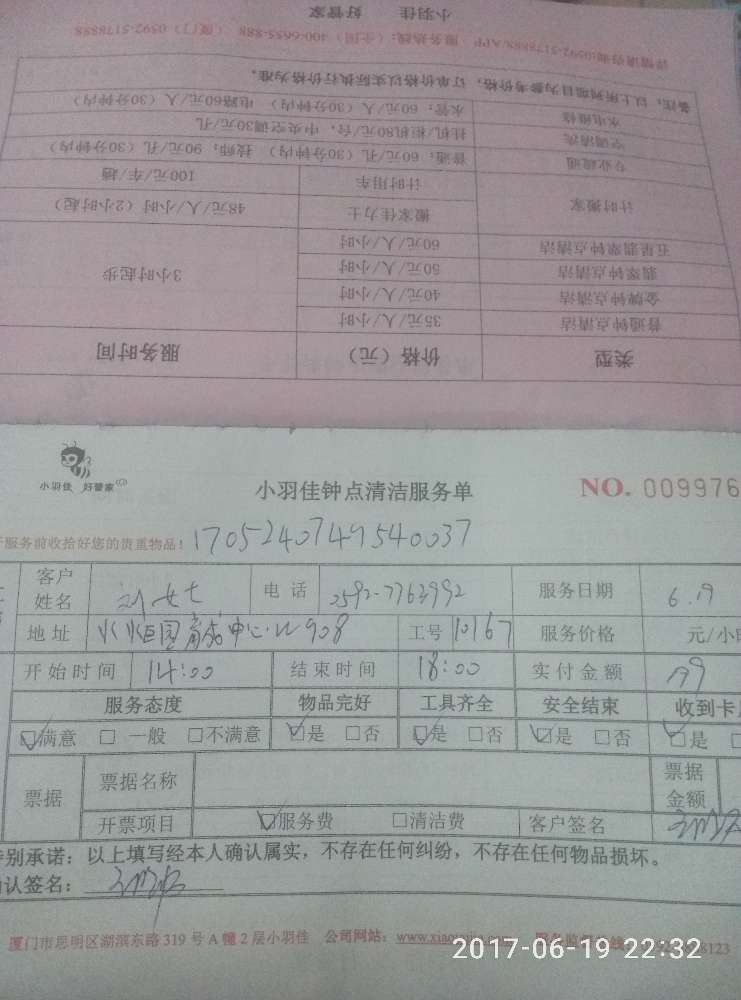 小羽佳 好管家
详情请咨询:0592-5178888/APP 服务热线:(全国)400-6655-888 (厦门)0592-5178888
备注:以上所列项目为参考价格,订单价格以实际执行价格为准。
水电维修 水管:60元/人(30分钟内) 电路60元/人(30分钟内)
空调清洗 挂机/柜机80元/台,中央空调30元/孔
专业疏通 普通:60元/孔(30分钟内) 技师:90元/孔(30分钟内)
计时搬家 计时用车 100元/车/趟
搬家佳力士 48元/人/小时(2小时起)
五星翡翠钟点清洁 60元/人/小时
翡翠钟点清洁 50元/人/小时 3小时起步
金牌钟点清洁 40元/人/小时
普通钟点清洁 35元/人/小时
类型 价格(元) 服务时间
小羽佳 好管家
小羽佳钟点清洁服务单
NO. 009976
服务前收拾好您的贵重物品! 1705240749540037
客户姓名 刘女士 电话 2592-7763992 服务日期 6.19
地址 908 工号 10167 服务价格 元/小时
开始时间 14:00 结束时间 18:00 实付金额 199
服务态度 物品完好 工具齐全 安全结束 收到卡
满意 一般 不满意 是 否 是 否 是 否 是
票据 票据名称 票据金额
开票项目 服务费 清洁费 客户签名
特别承诺:以上填写经本人确认属实,不存在任何纠纷,不存在任何物品损坏。
确认签名:
厦门市思明区湖滨东路 319 号 A 幢 2 层小羽佳 公司网站:
2017-06-19 22:32